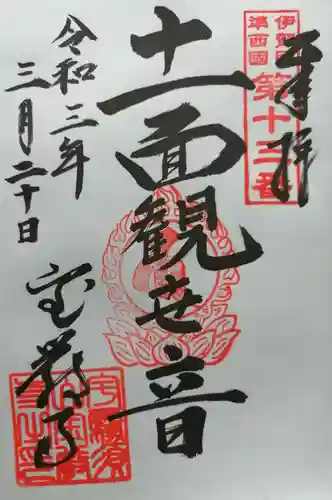 奉拝
伊賀
準西國
第十三番
十一面観世音
令和三年
三月二十日
宝厳寺